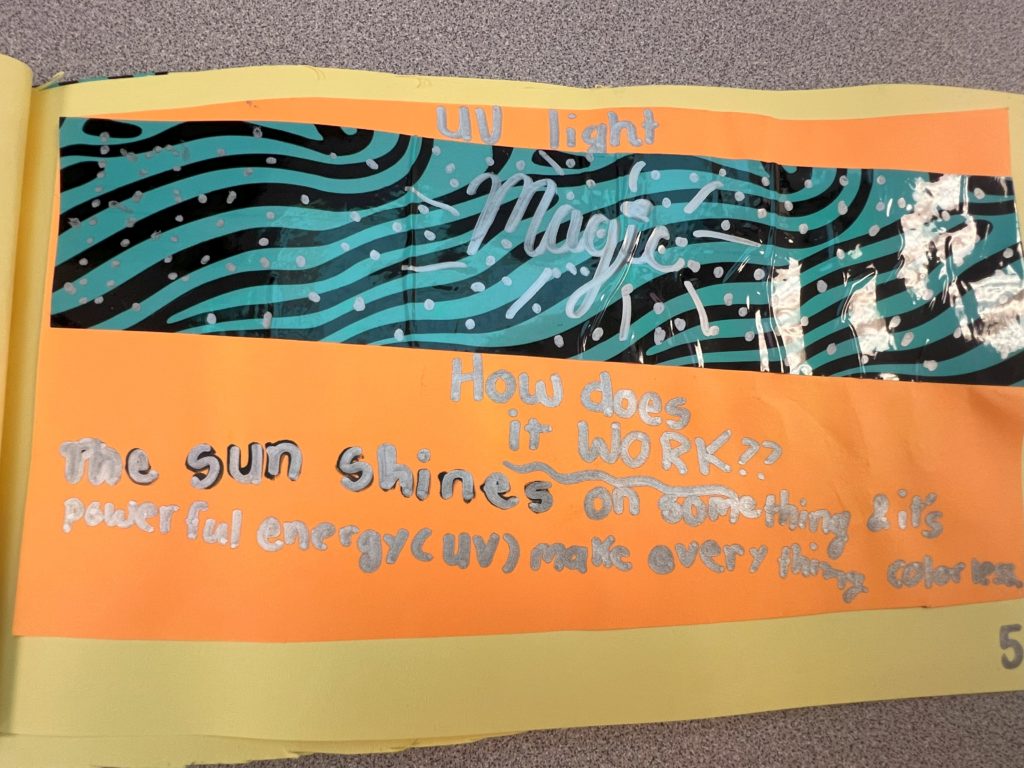 UV light
Magic
How does
it WORK??
The sun shines on something & it's
powerful energy (UV) make every thing colorless.
5